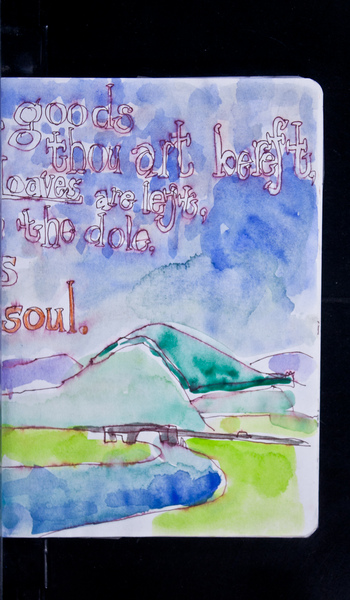 goods
thou art bereft,
Loaves are left,
the dole,
s
soul.